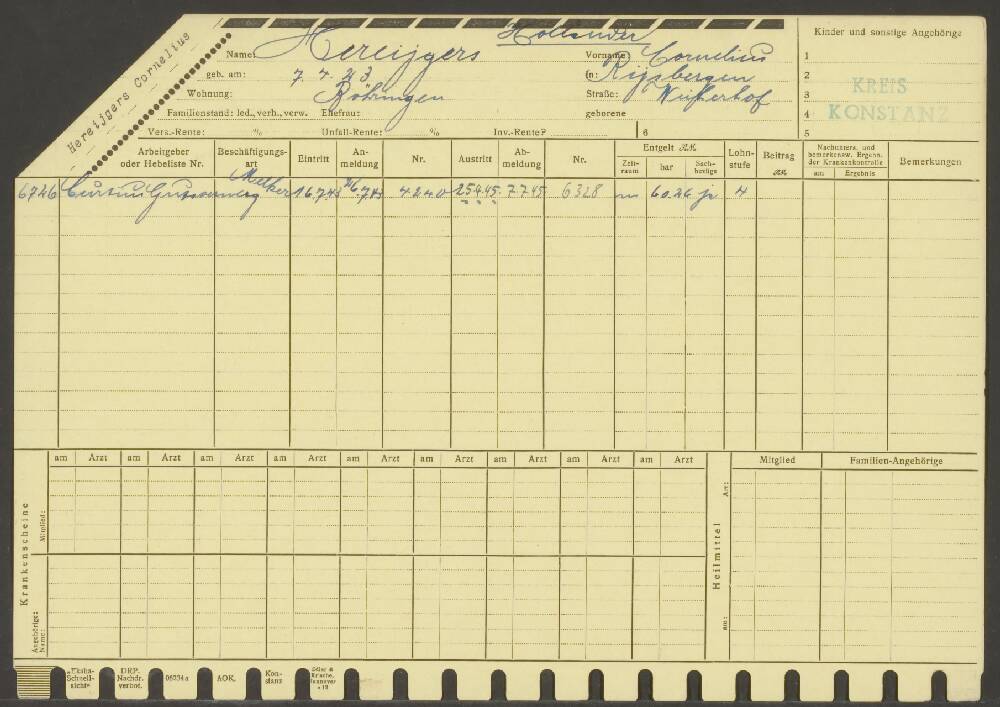 Hereijgers Cornelius
Holländer
Name: Hereijgers
Vorname: Cornelius
geb. am: 7. 4. 23
in: Rijsbergen
Wohnung: Böhringen
Straße: Weiherhof
Familienstand: led., verh., verw. Ehefrau: geborene
Vers.-Rente: % Unfall-Rente: % Inv.-Rente?
Kinder und sonstige Angehörige
1
2
3
4
5
6
KREIS
KONSTANZ
Arbeitgeber oder Hebeliste Nr.
Beschäftigungs-art
Eintritt
An-meldung
Nr.
Austritt
Ab-meldung
Nr.
Entgelt RM.
Zeit-raum
bar
Sach-bezüge
Lohn-stufe
Beitrag RM.
Nachunters. und bemerkensw. Ergebn. der Krankenkontrolle
am Ergebnis
Bemerkungen
6726 Melker 16.7.43 7.43 4240 25.4.45. 7.7.45 6328 m 60.26 ja 4
am Arzt am Arzt am Arzt am Arzt am Arzt am Arzt am Arzt am Arzt am Arzt
Krankenscheine
Mitglied:
Angehörige: Name:
Heilmittel
Art:
am:
Mitglied
Familien-Angehörige
DRP. Nachdr. verbot.
AOK.
Kon-stanz